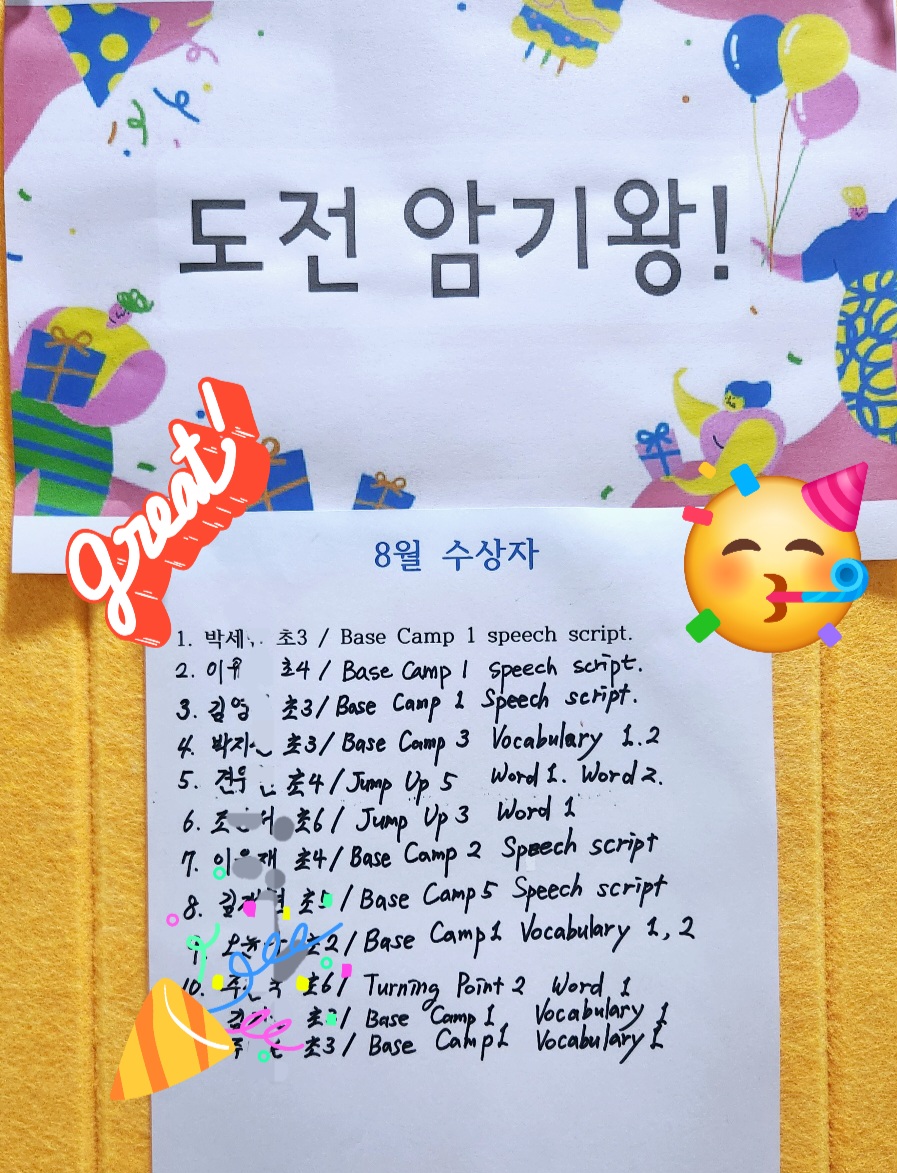 도전 암기왕!
great!
8월 수상자
1. 박세 초3 / Base Camp 1 speech script.
2. 이유 초4 / Base Camp 1 speech script.
3. 김영 초3 / Base Camp 1 Speech script.
4. 박지 초3 / Base Camp 3 Vocabulary 1.2
5. 초4 / Jump Up 5 Word 1. Word 2.
6. 초6 / Jump Up 3 Word 1
7. 초4 / Base Camp 2 Speech script
8. 초5 / Base Camp 5 Speech script
9. 초2 / Base Camp 1 Vocabulary 1, 2
10. 초6 / Turning Point 2 Word 1
/ Base Camp 1 Vocabulary 1
초3 / Base Camp 1 Vocabulary 1